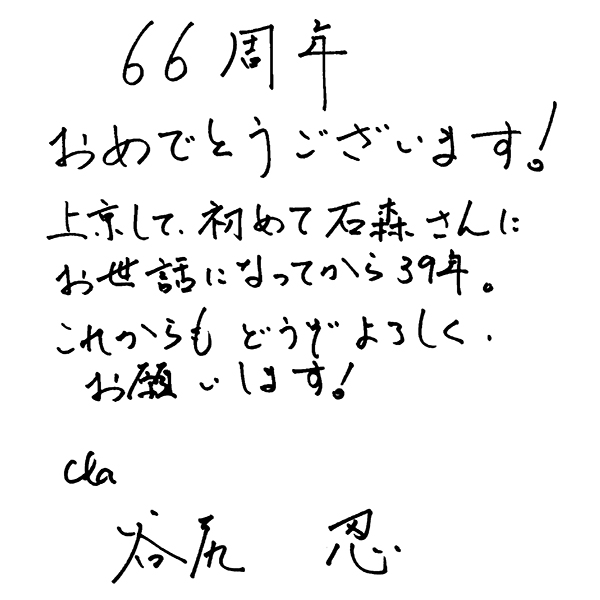 66周年
おめでとうございます!。
上京して、初めて石森さんに
お世話になってから39年。
これからも どうぞよろしく、
お願いします!
Cla
谷尻 忍